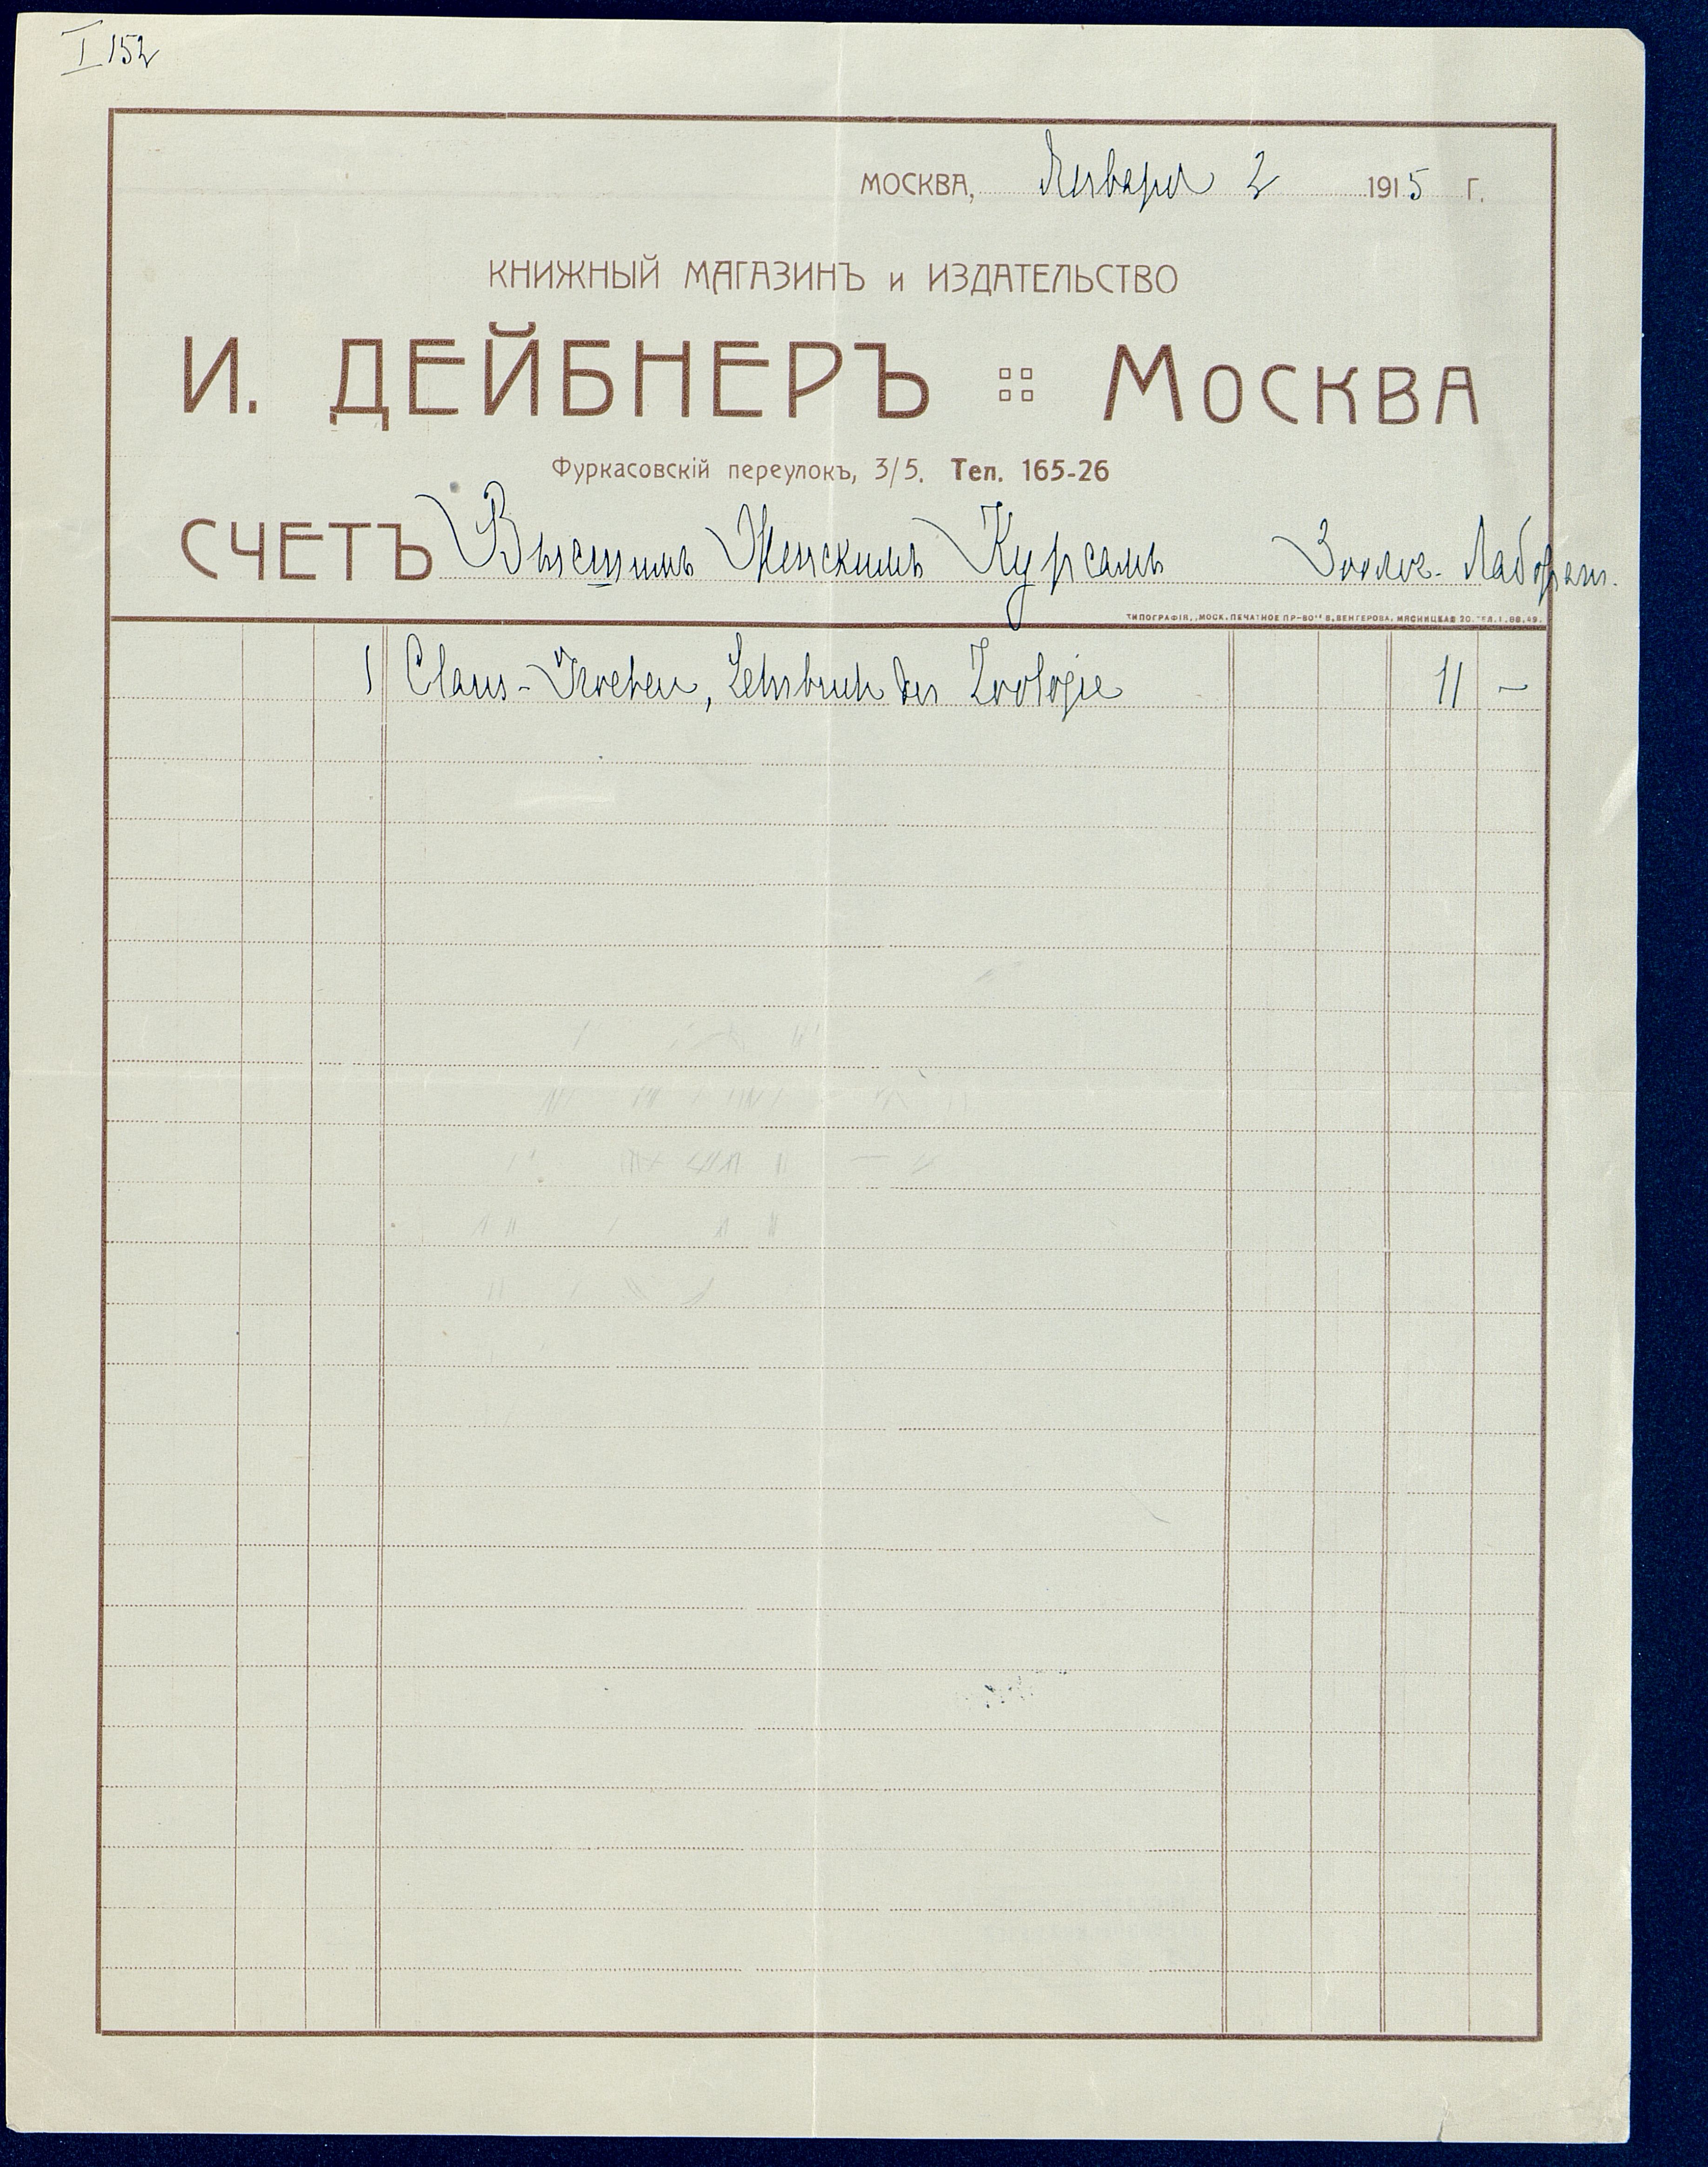 I 152
МОСКВА, Января 2 1915 Г.
КНИЖНЫЙ МАГАЗИНЪ и ИЗДАТЕЛЬСТВО
И. ДЕЙБНЕРЪ :: МОСКВА
Фуркасовскій переулокъ, 3/5. Тел. 165-26
СЧЕТЪ Высшимъ Женскимъ Курсамъ Зоолог. Лаборат.
ТИПОГРАФІЯ „МОСК. ПЕЧАТНОЕ ПР-ВО“ В. ВЕНГЕРОВА, МЯСНИЦКАЯ 20. ТЕЛ. 1.88.49.
1 Claus-Grobben, Lehrbuch der Zoologie 11 –